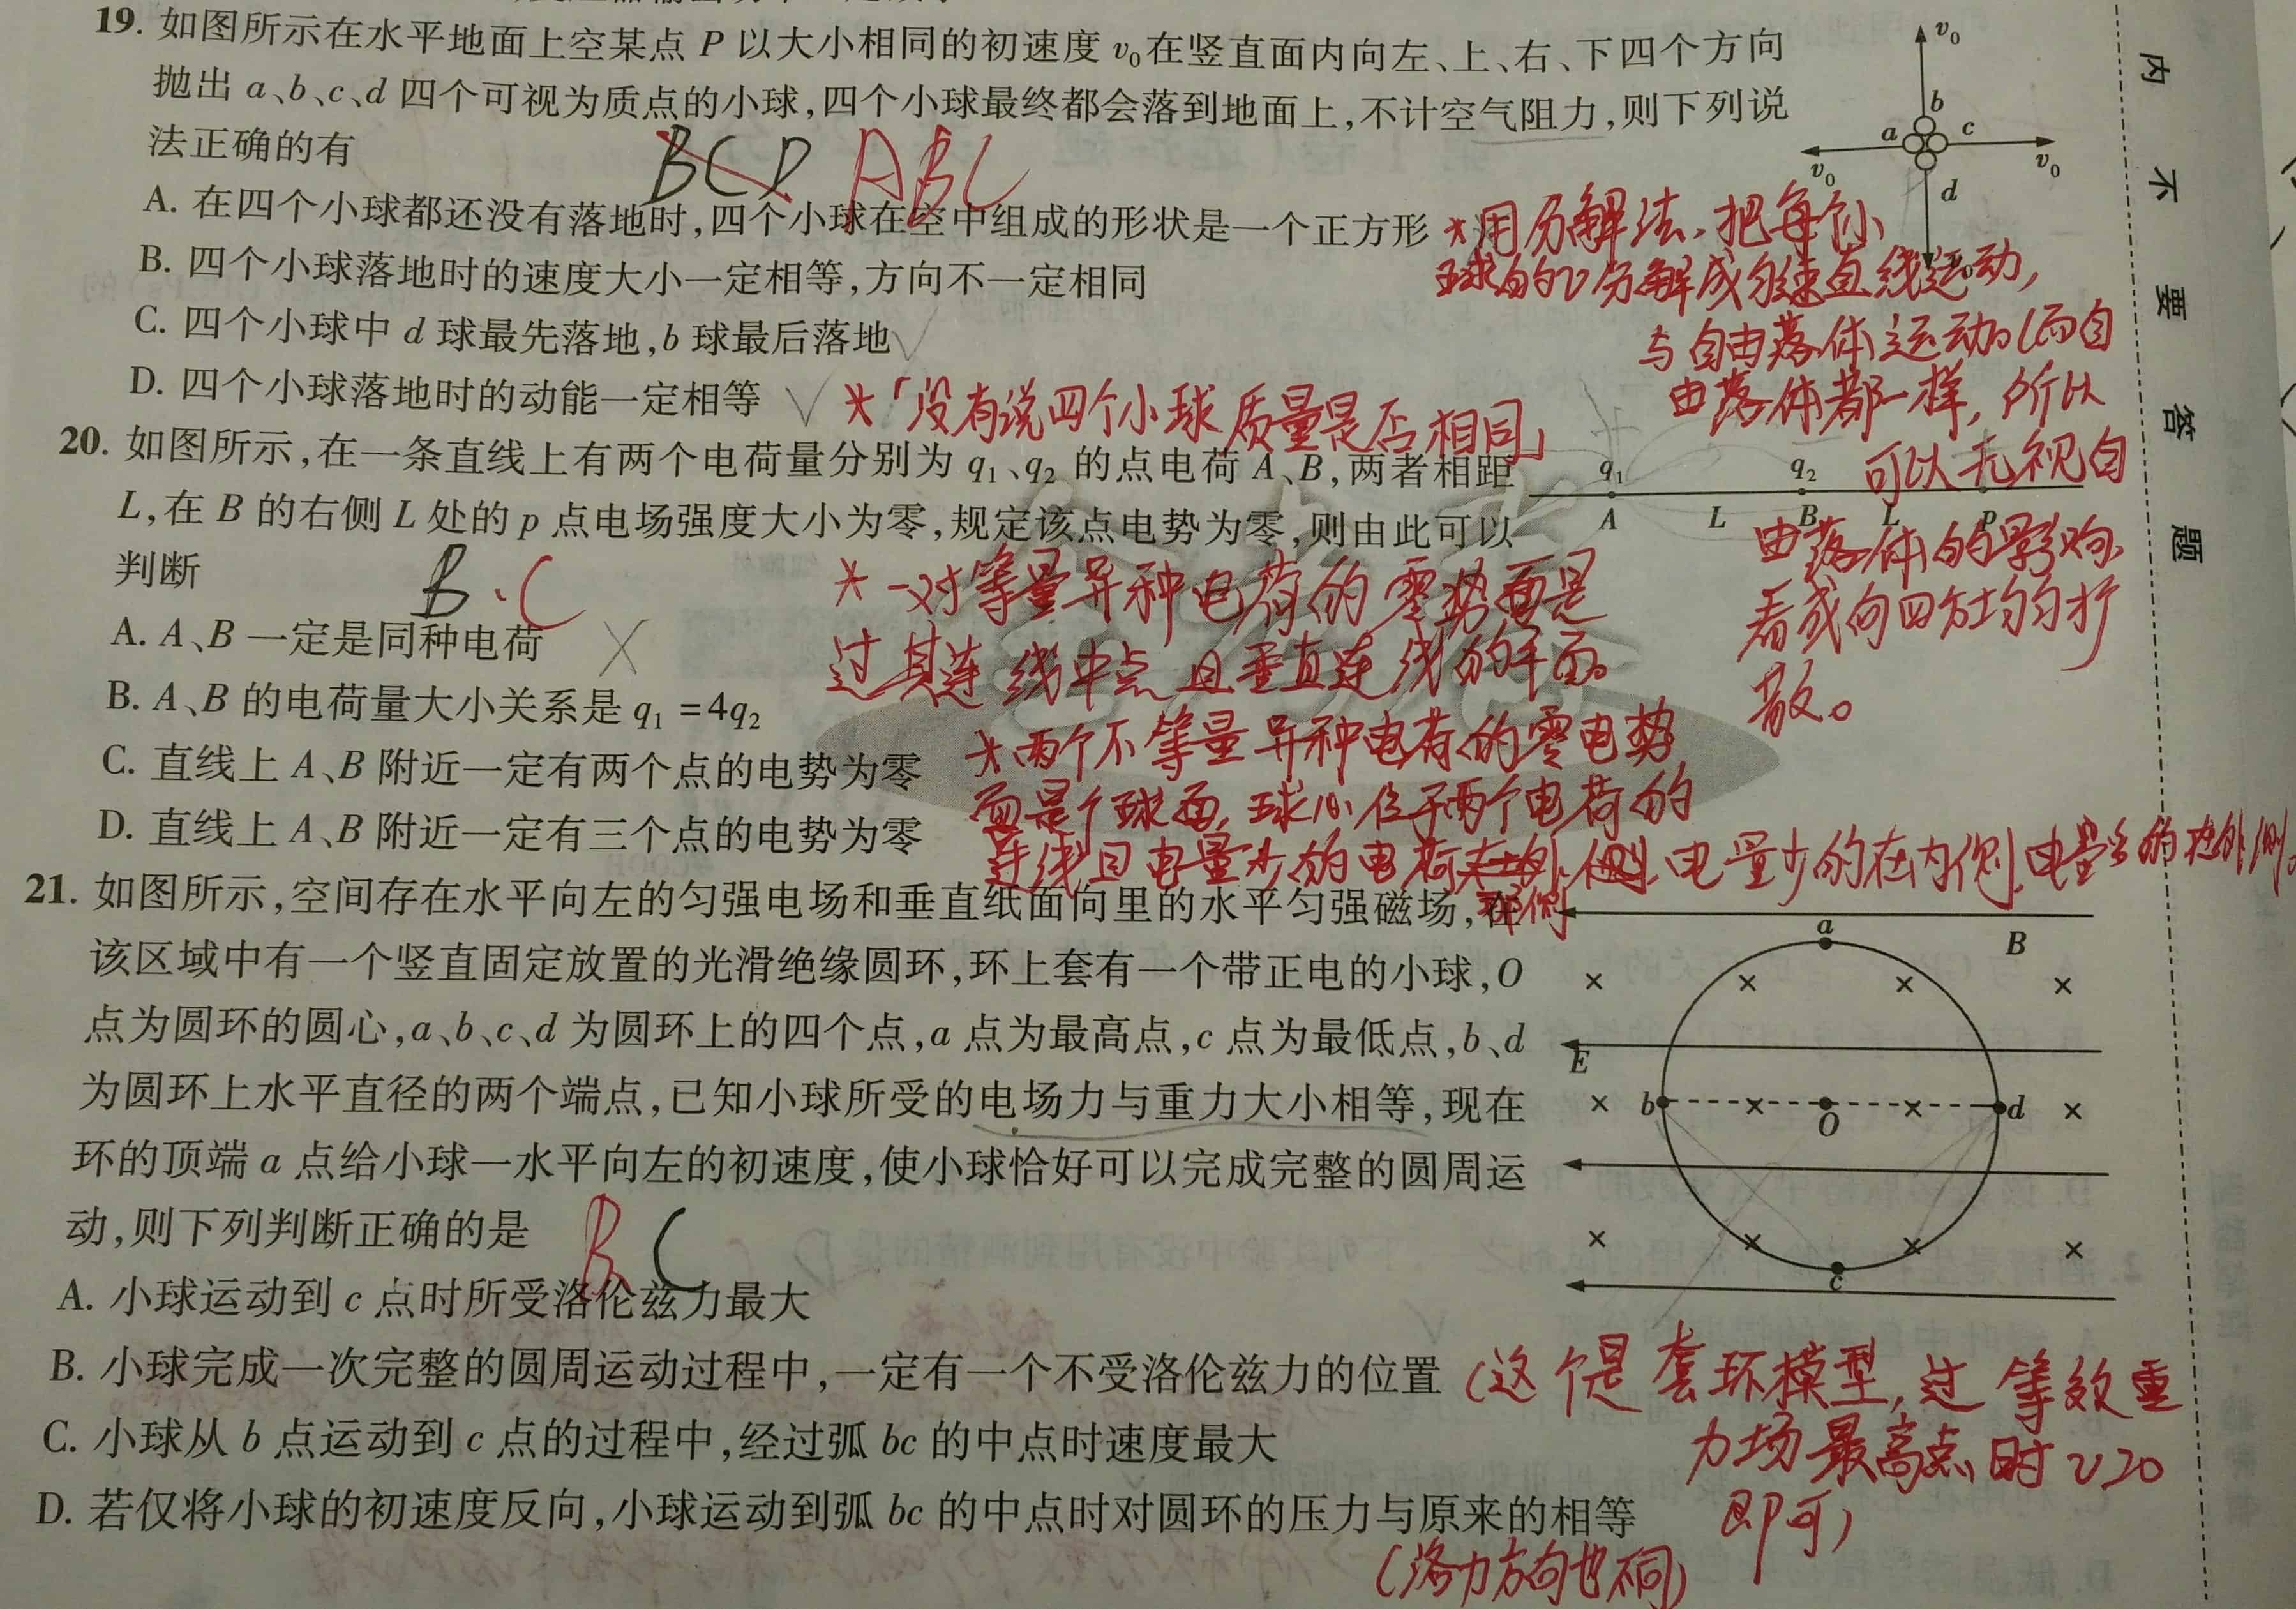 19. 如图所示在水平地面上空某点 P 以大小相同的初速度 v₀在竖直面内向左、上、右、下四个方向
抛出 a、b、c、d 四个可视为质点的小球,四个小球最终都会落到地面上,不计空气阻力,则下列说
法正确的有
BCD ABC
A. 在四个小球都还没有落地时,四个小球在空中组成的形状是一个正方形
B. 四个小球落地时的速度大小一定相等,方向不一定相同
C. 四个小球中 d 球最先落地,b 球最后落地 √
D. 四个小球落地时的动能一定相等 √
*「没有说四个小球质量是否相同」
v₀
b
a c
v₀ v₀
d
v₀
*用分解法,把每个小
球的v分解成匀速直线运动,
与自由落体运动。(而自
由落体都一样,所以
可以无视自
由落体的影响,
看成向四方均匀扩
散。
20. 如图所示,在一条直线上有两个电荷量分别为 q₁、q₂ 的点电荷 A、B,两者相距
L,在 B 的右侧 L 处的 p 点电场强度大小为零,规定该点电势为零,则由此可以
判断
B、C
A. A、B 一定是同种电荷 ×
B. A、B 的电荷量大小关系是 q₁ =4q₂
C. 直线上 A、B 附近一定有两个点的电势为零
D. 直线上 A、B 附近一定有三个点的电势为零
q₁ q₂
A L B L p
*一对等量异种电荷的零势面是
过其连线中点且垂直连线的平面。
*两个不等量异种电荷的零电势
面是个球面,球心位于两个电荷的
连线且电量少的电荷
那侧
电量少的在内侧,电量多的在外侧。
21. 如图所示,空间存在水平向左的匀强电场和垂直纸面向里的水平匀强磁场,在
该区域中有一个竖直固定放置的光滑绝缘圆环,环上套有一个带正电的小球,O
点为圆环的圆心,a、b、c、d 为圆环上的四个点,a 点为最高点,c 点为最低点,b、d
为圆环上水平直径的两个端点,已知小球所受的电场力与重力大小相等,现在
环的顶端 a 点给小球一水平向左的初速度,使小球恰好可以完成完整的圆周运
动,则下列判断正确的是
BC
A. 小球运动到 c 点时所受洛伦兹力最大
B. 小球完成一次完整的圆周运动过程中,一定有一个不受洛伦兹力的位置
C. 小球从 b 点运动到 c 点的过程中,经过弧 bc 的中点时速度最大
D. 若仅将小球的初速度反向,小球运动到弧 bc 的中点时对圆环的压力与原来的相等
a
B
E
b O d
c
(这个是套环模型,过等效重
力场最高点时v≥0
即可)
(洛力方向也不同)
内
不
要
答
题